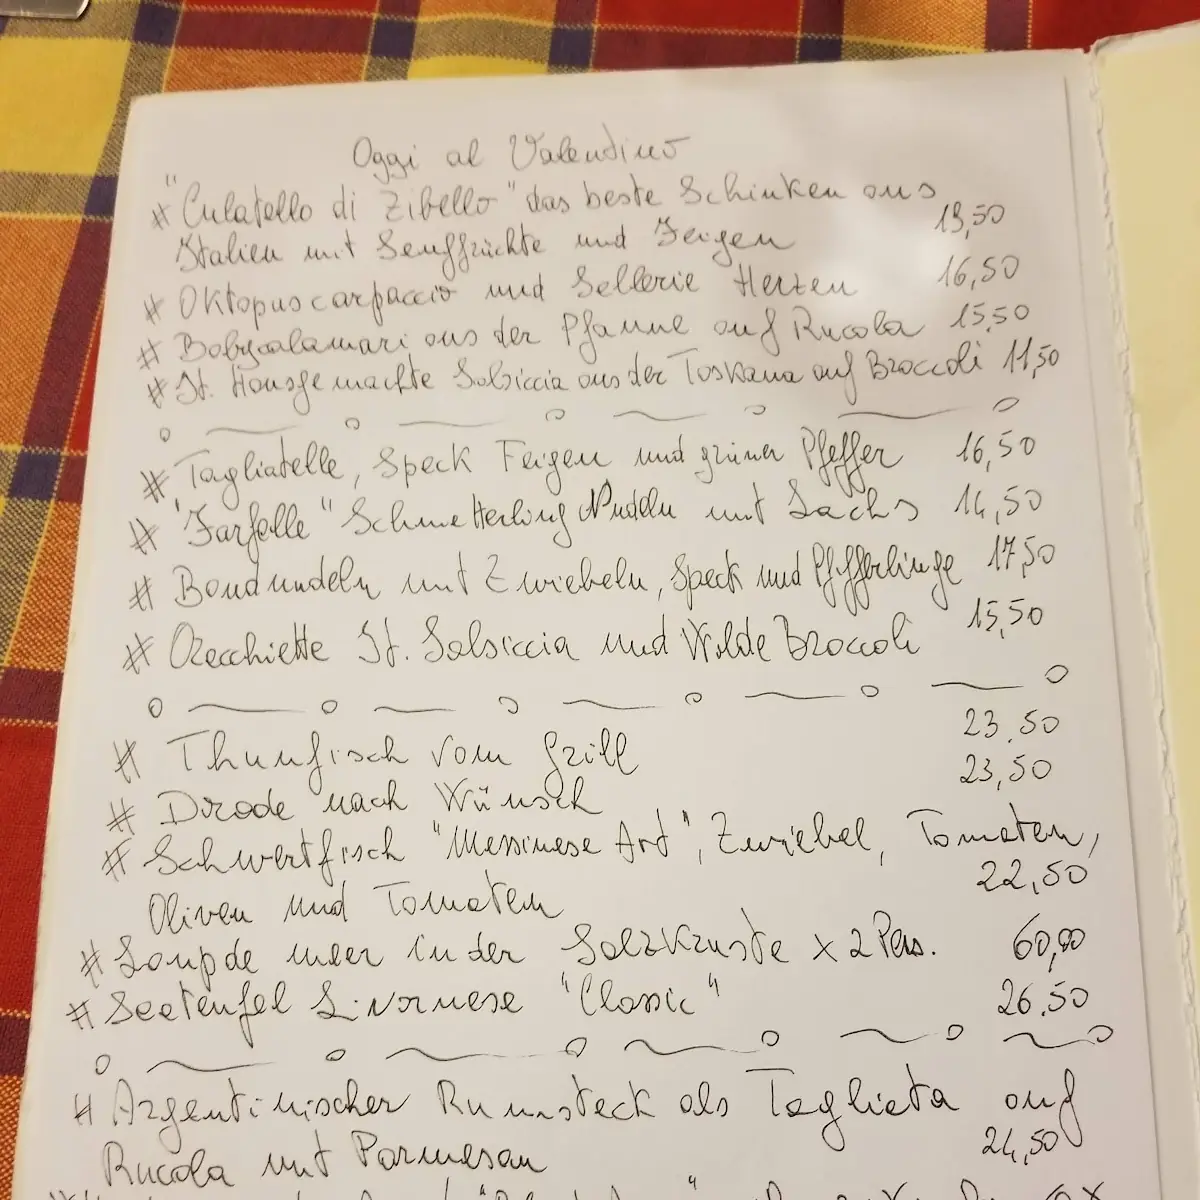 Oggi al Valentino
# "Culatello di Zibello" das beste Schinken aus
Italien mit Senffrüchte und Feigen 19,50
# Oktopuscarpaccio und Sellerie Herzen 16,50
# Babycalamari aus der Pfanne auf Rucola 15,50
# It. Hausgemachte Salsiccia aus der Toskana auf Broccoli 11,50
# Tagliatelle, Speck Feigen und grüner Pfeffer 16,50
# "Farfalle" Schmetterling Nudeln mit Lachs 14,50
# Bandnudeln mit Zwiebeln, Speck und Pfifferlinge 17,50
# Orecchiette It. Salsiccia und Wilde Broccoli 15,50
# Thunfisch vom Grill 23,50
# Dorade nach Wünsch 23,50
# Schwertfisch "Messinese Art", Zwiebel, Tomaten,
Oliven und Tomaten 22,50
# Loup de meer in der Salzkruste x 2 Pers. 60,00
# Seeteufel Livornese "Classic" 26,50
# Argentinischer Rumsteck als Taglieta auf
Rucola mit Parmesan 24,50